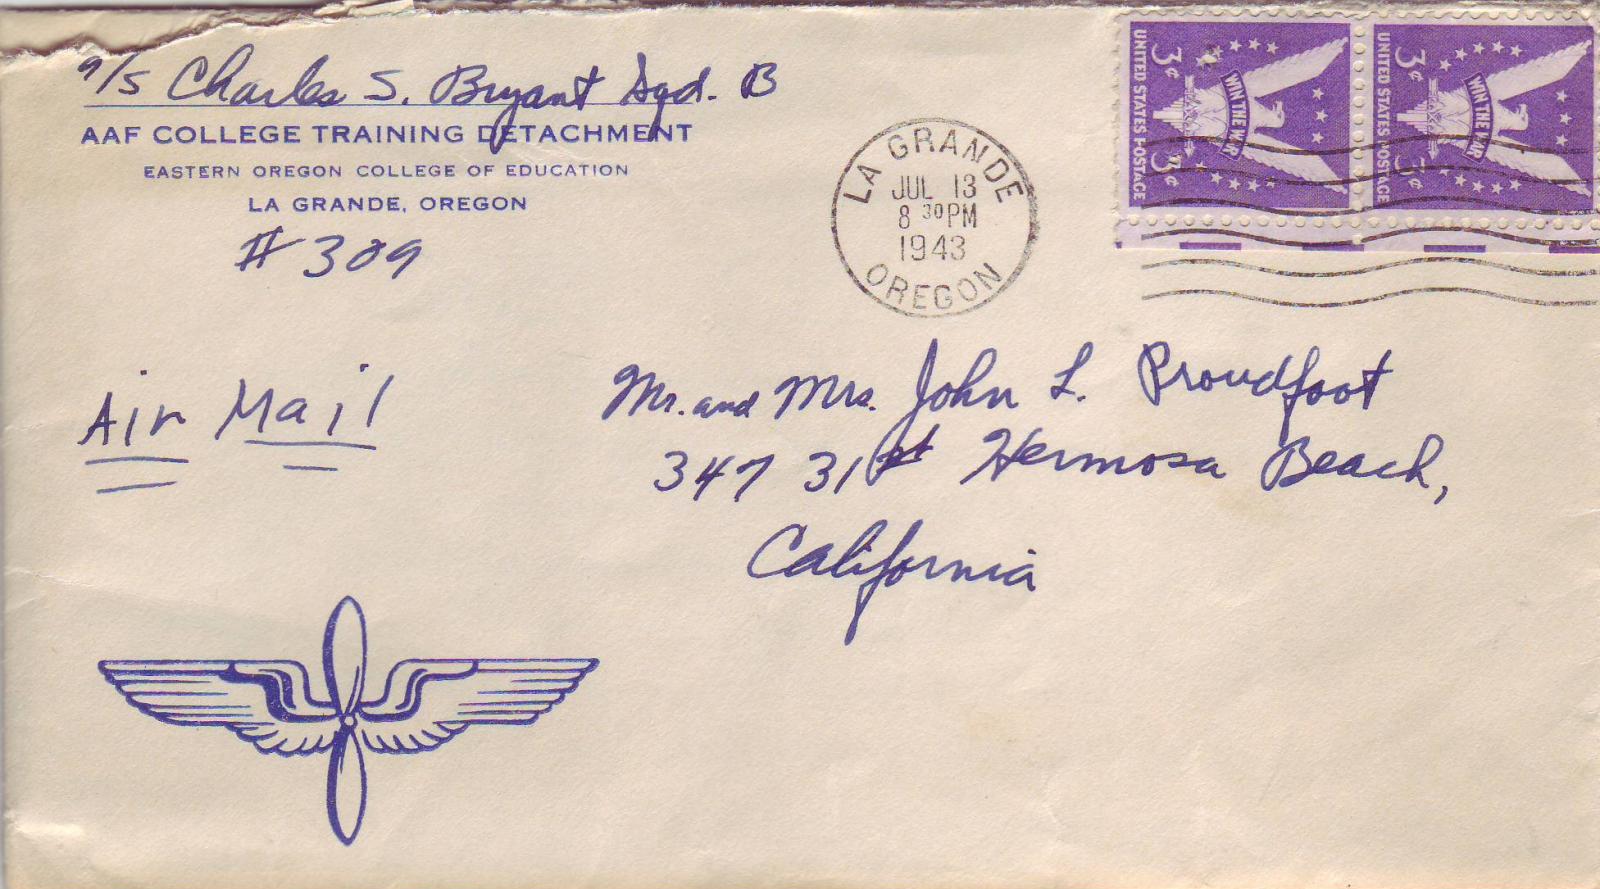 a/s Charles S. Bryant Sqd. B
AAF COLLEGE TRAINING DETACHMENT
EASTERN OREGON COLLEGE OF EDUCATION
LA GRANDE, OREGON
# 309
LA GRANDE
JUL 13
8 30 PM
1943
OREGON
UNITED STATES POSTAGE
3¢
WIN THE WAR
3¢
UNITED STATES POSTAGE
3¢
WIN THE WAR
3¢
Air Mail
Mr. and Mrs. John L. Proudfoot
347 31st Hermosa Beach,
California